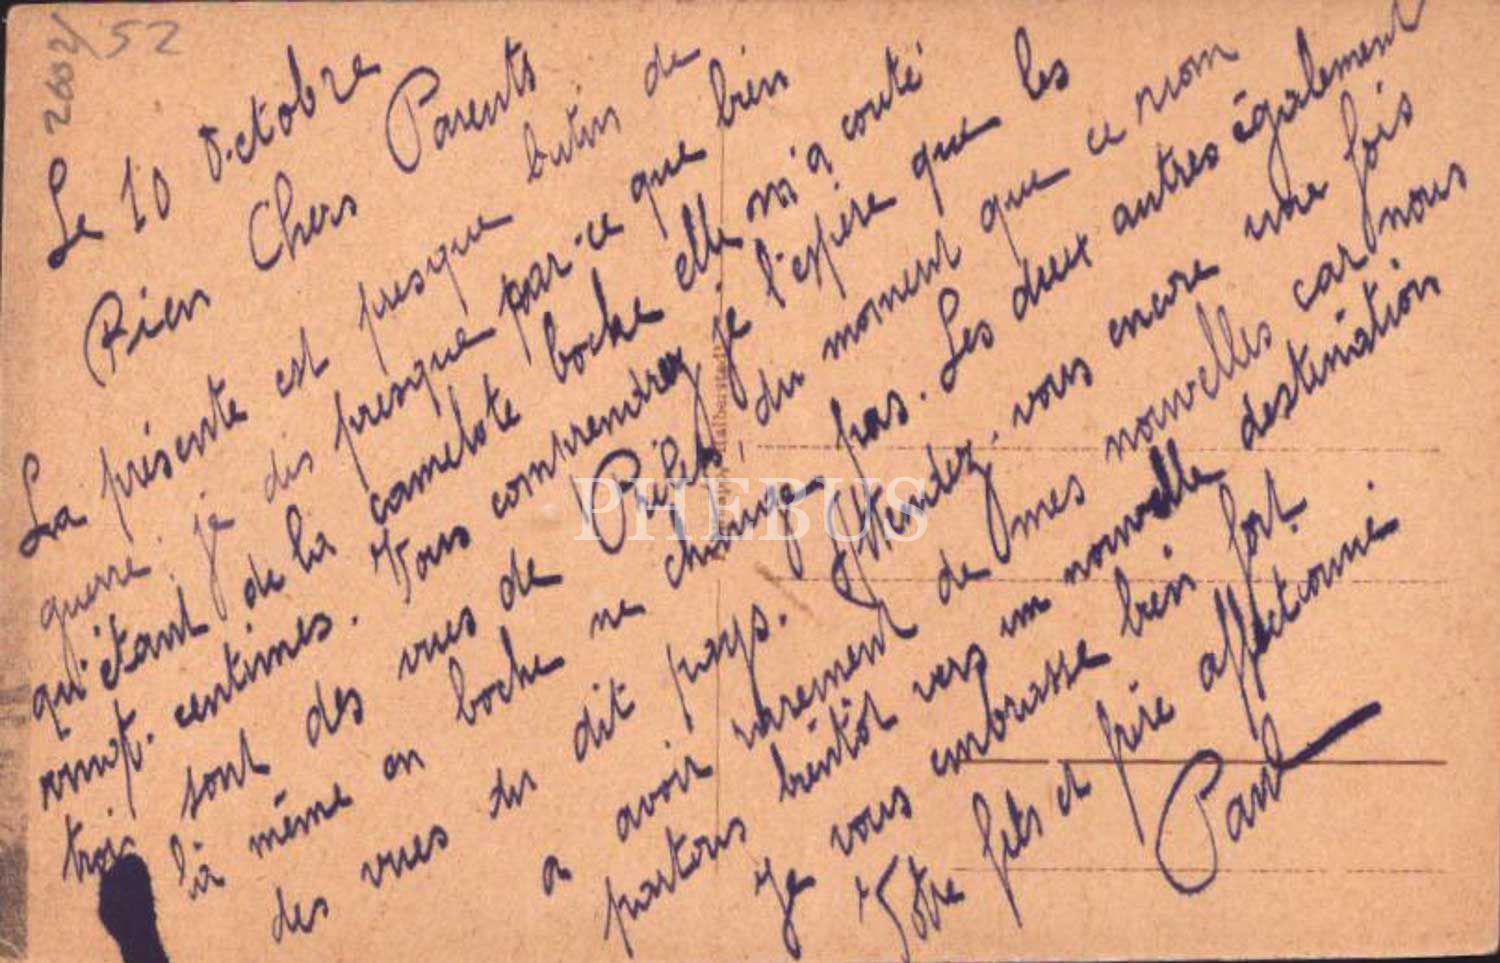 2602/52
Le 10 Octobre
Bien Chers Parents
La présente est presque butin de
guerre, je dis presque par-ce que bien
qu'étant de la camelote boche elle m'a couté
vingt-centimes. Vous comprendrez je l'espère que les
trois sont des vues de du moment que ce nom
là même en boche ne change pas. Les deux autres également
des vues du dit pays. Attendez-vous encore une fois
a avoir rarement de mes nouvelles car nous
partons bientôt vers un nouvelle destination
Je vous embrasse bien fort
Votre fils et frère affectionné
Paul
PHEBUS